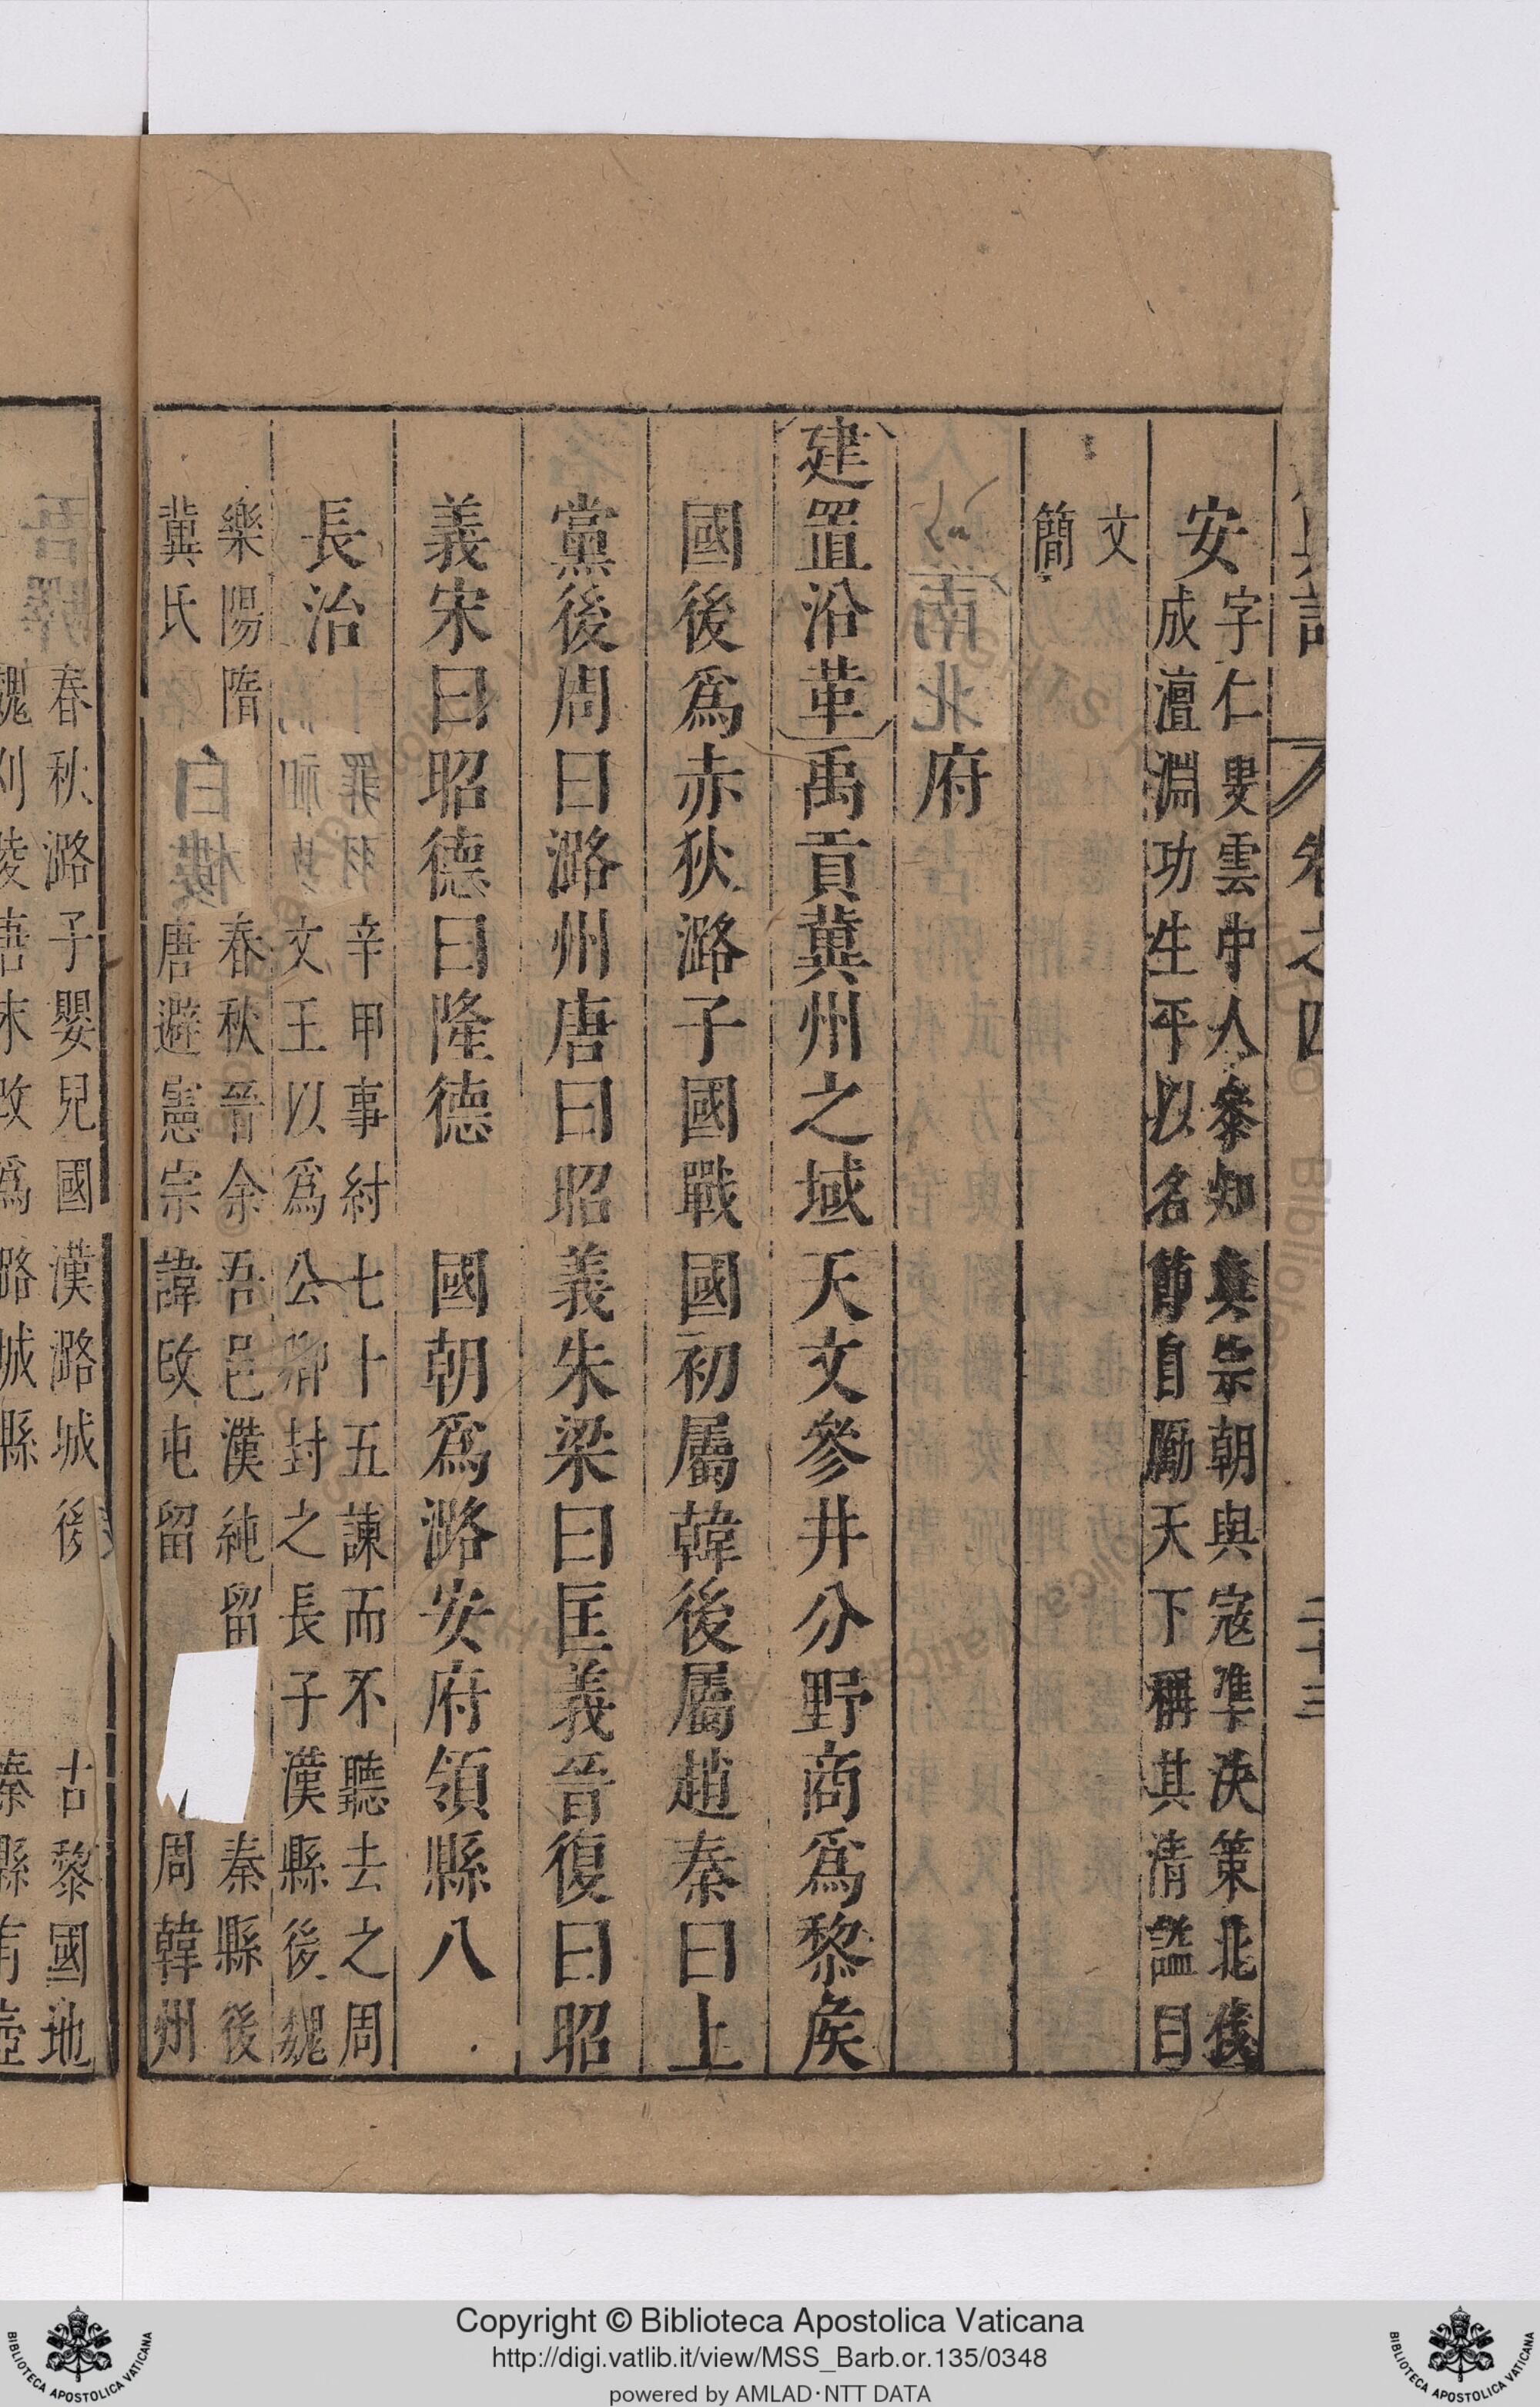 卷之四 二十三
安 字仁叟雲中人參知真宗朝與寇凖决策北伐
成澶淵功生平以名節自勵天下稱其清謚曰
文
簡
府
建置沿革 禹貢冀州之域天文參井分野商爲黎侯
國後爲赤狄潞子國戰國初屬韓後屬趙秦曰上
黨後周曰潞州唐曰昭義朱梁曰匡義晉復曰昭
義宋曰昭德曰隆德 國朝爲潞安府領縣八
長治 辛甲事紂七十五諫而不聽去之周
文王以爲公卿封之長子漢縣後魏
樂陽隋 春秋晉余吾邑漢純留 秦縣後
冀氏 唐避憲宗諱改屯留 周韓州
春秋潞子嬰兒國漢潞城後 古黎國地
魏刈陵唐末改爲潞城縣 秦縣有壺
Copyright © Biblioteca Apostolica Vaticana
http://digi.vatlib.it/view/MSS_Barb.or.135/0348
powered by AMLAD·NTT DATA
BIBLIOTECA APOSTOLICA VATICANA
BIBLIOTECA APOSTOLICA VATICANA